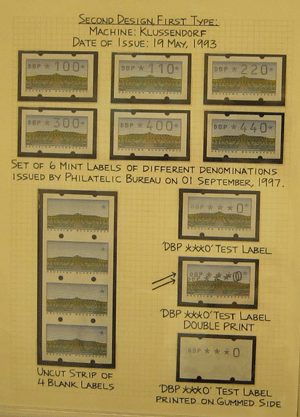 SECOND DESIGN, FIRST TYPE:
MACHINE: KLUSSENDORF
DATE OF ISSUE: 19 MAY, 1993
DBP ★ 100 ★
DBP ★ 110 ★
DBP ★ ★ 220 ★
DBP ★ ★ 300 ★
DBP ★ ★ 400 ★
DBP ★ ★ 440 ★
SET OF 6 MINT LABELS OF DIFFERENT DENOMINATIONS
ISSUED BY PHILATELIC BUREAU ON 01 SEPTEMBER, 1997.
★ ★ ★ 0 ★
'DBP ★★★0' TEST LABEL
'DBP ★★★0' TEST LABEL
DOUBLE PRINT
UNCUT STRIP OF
4 BLANK LABELS
'DBP ★★★0' TEST LABEL
PRINTED ON GUMMED SIDE